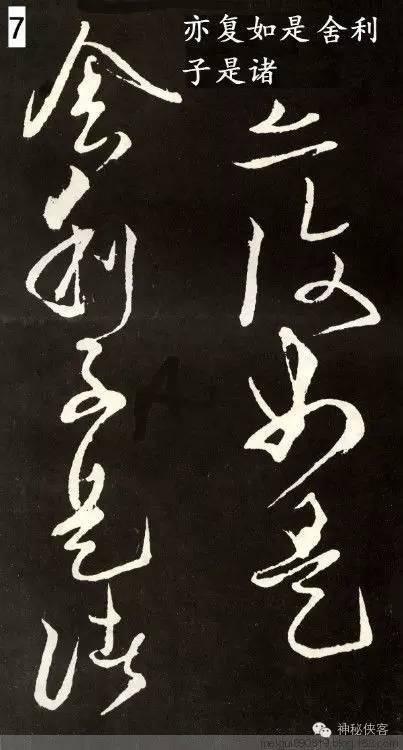 7
亦复如是舍利
子是诸
亦復如是
舍利子是諸
神秘侠客